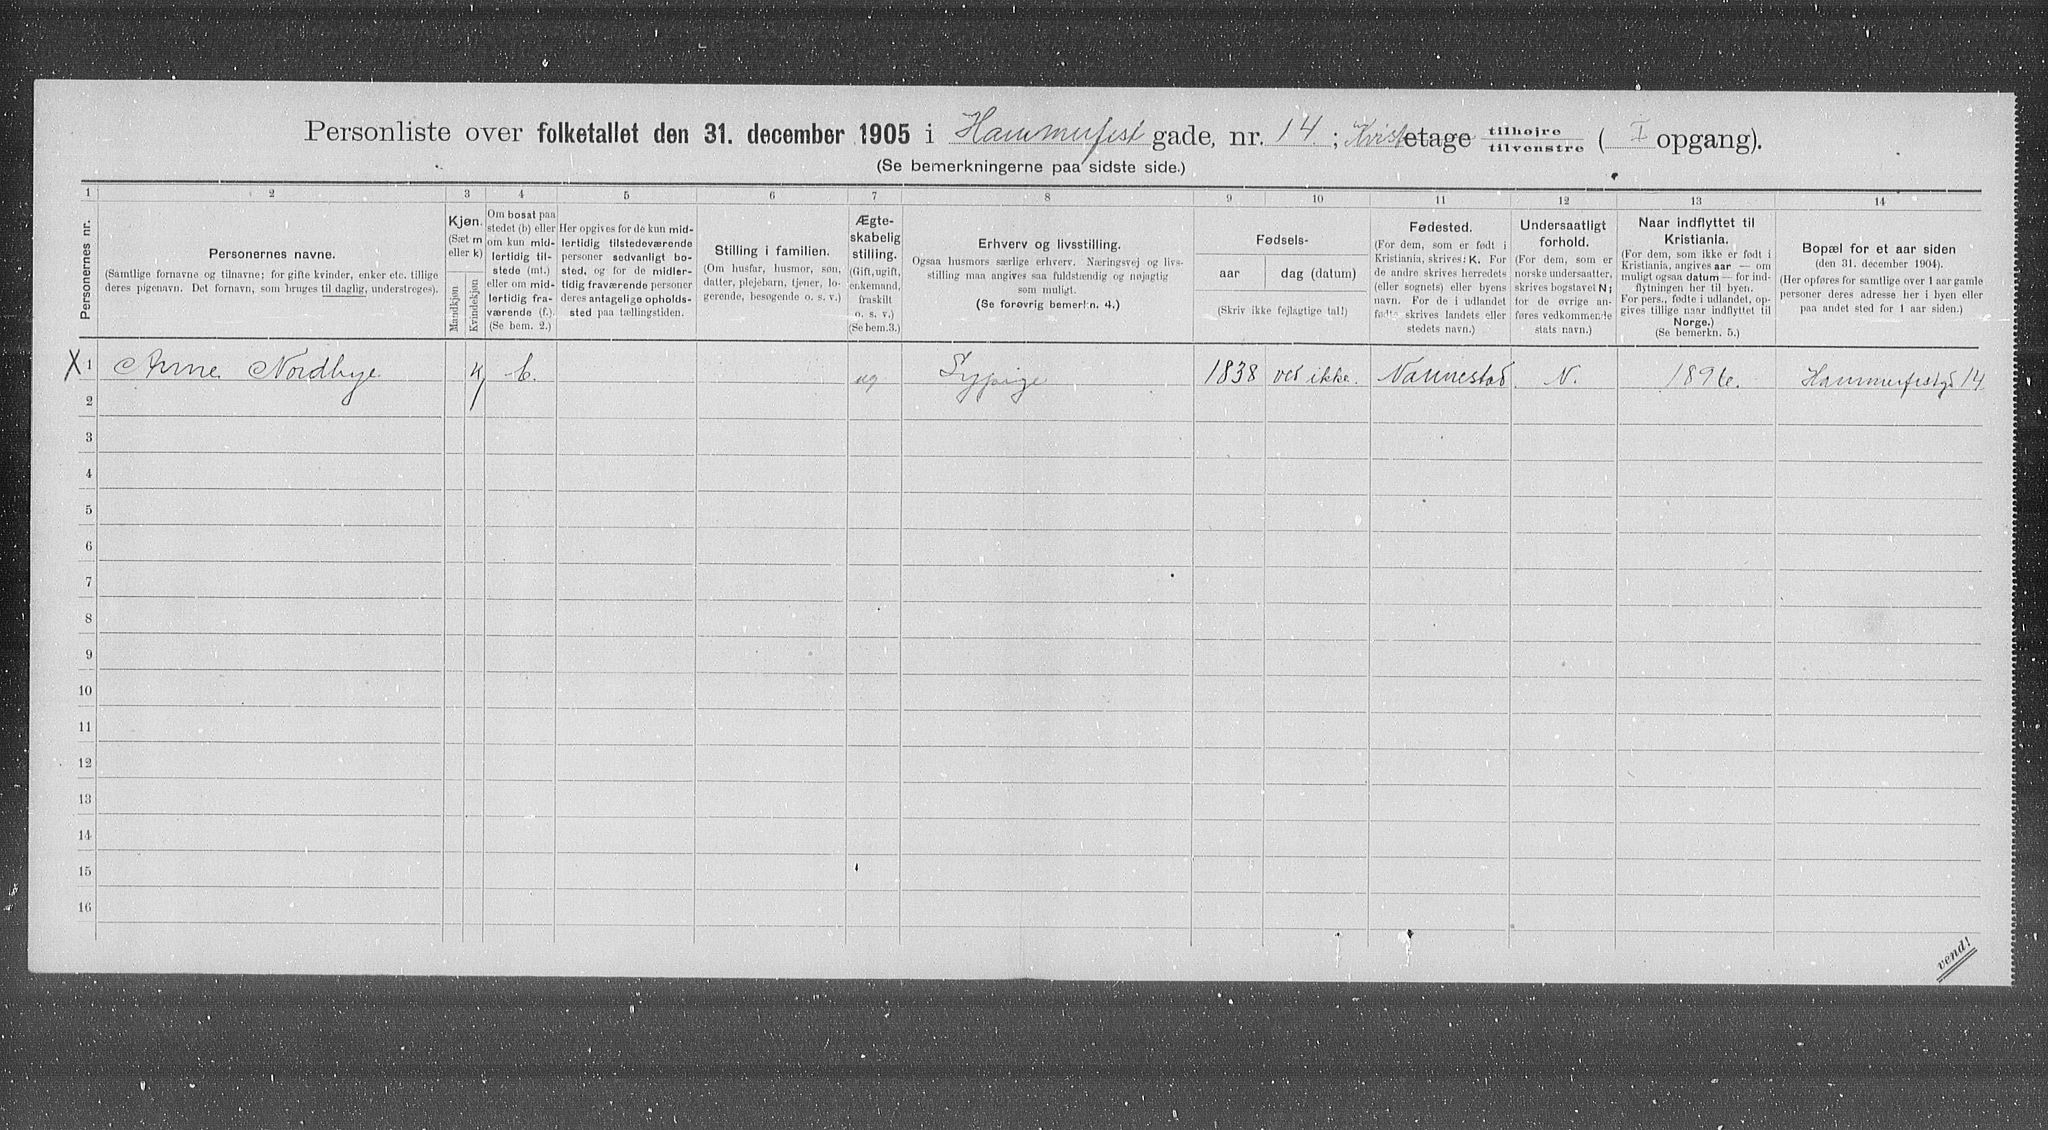 Personliste over folketallet den 31. december 1905 i Hammerfest gade, nr. 14. ; Kvist etage tilhøjre tilvenstre ( I opgang).
(Se bemerkningerne paa sidste side.)
1 2 3 4 5 6 7 8 9 10 11 12 13 14
Personernes nr.
Personernes navne.
(Samtlige fornavne og tilnavne; for gifte kvinder, enker etc. tillige
deres pigenavn. Det fornavn, som bruges til daglig, understreges).
Kjøn.
(Sæt m
eller k)
Mandkjøn
Kvindekjøn
Om bosat paa
stedet (b) eller
om kun mid-
lertidig til-
stede (mt.)
eller om mid-
lertidig fra-
værende (f.).
(Se bem. 2.)
Her opgives for de kun mid-
lertidig tilstedeværende
personer sedvanligt bo-
sted, og for de midler-
tidig fraværende personer
deres antagelige opholds-
sted paa tællingstiden.
Stilling i familien.
(Om husfar, husmor, søn,
datter, plejebarn, tjener, lo-
gerende, besøgende o. s. v.)
Ægte-
skabelig
stilling.
(Gift, ugift,
enkemand,
fraskilt
o. s. v.)
(Se bem.3.)
Erhverv og livsstilling.
Ogsaa husmors særlige erhverv. Næringsvej og livs-
stilling maa angives saa fuldstændig og nøjagtig
som muligt.
(Se forøvrig bemerkn. 4.)
Fødsels-
aar dag (datum)
(Skriv ikke fejlagtige tal!)
Fødested.
(For dem, som er født i
Kristiania, skrives: K. For
de andre skrives herredets
(eller sognets) eller byens
navn. For de i udlandet
fødte skrives landets eller
stedets navn.)
Undersaatligt
forhold.
(For dem, som er
norske undersaatter,
skrives bogstavet N;
for de øvrige an-
føres vedkommende
stats navn.)
Naar indflyttet til
Kristiania.
(For dem, som ikke er født i
Kristiania, angives aar — om
muligt ogsaa datum — for ind-
flytningen her til byen.
For pers., fødte i udlandet, op-
gives tillige naar indflyttet til
Norge.)
(Se bemerkn. 5.)
Bopæl for et aar siden
(den 31. december 1904).
(Her opføres for samtlige over 1 aar gamle
personer deres adresse her i byen eller
paa andet sted for 1 aar siden.)
X 1 Anne Nordbye k b. ug Sypige 1838 ved ikke. Nannestad N. 1896. Hammerfestgd 14
2
3
4
5
6
7
8
9
10
11
12
13
14
15
16
vend!